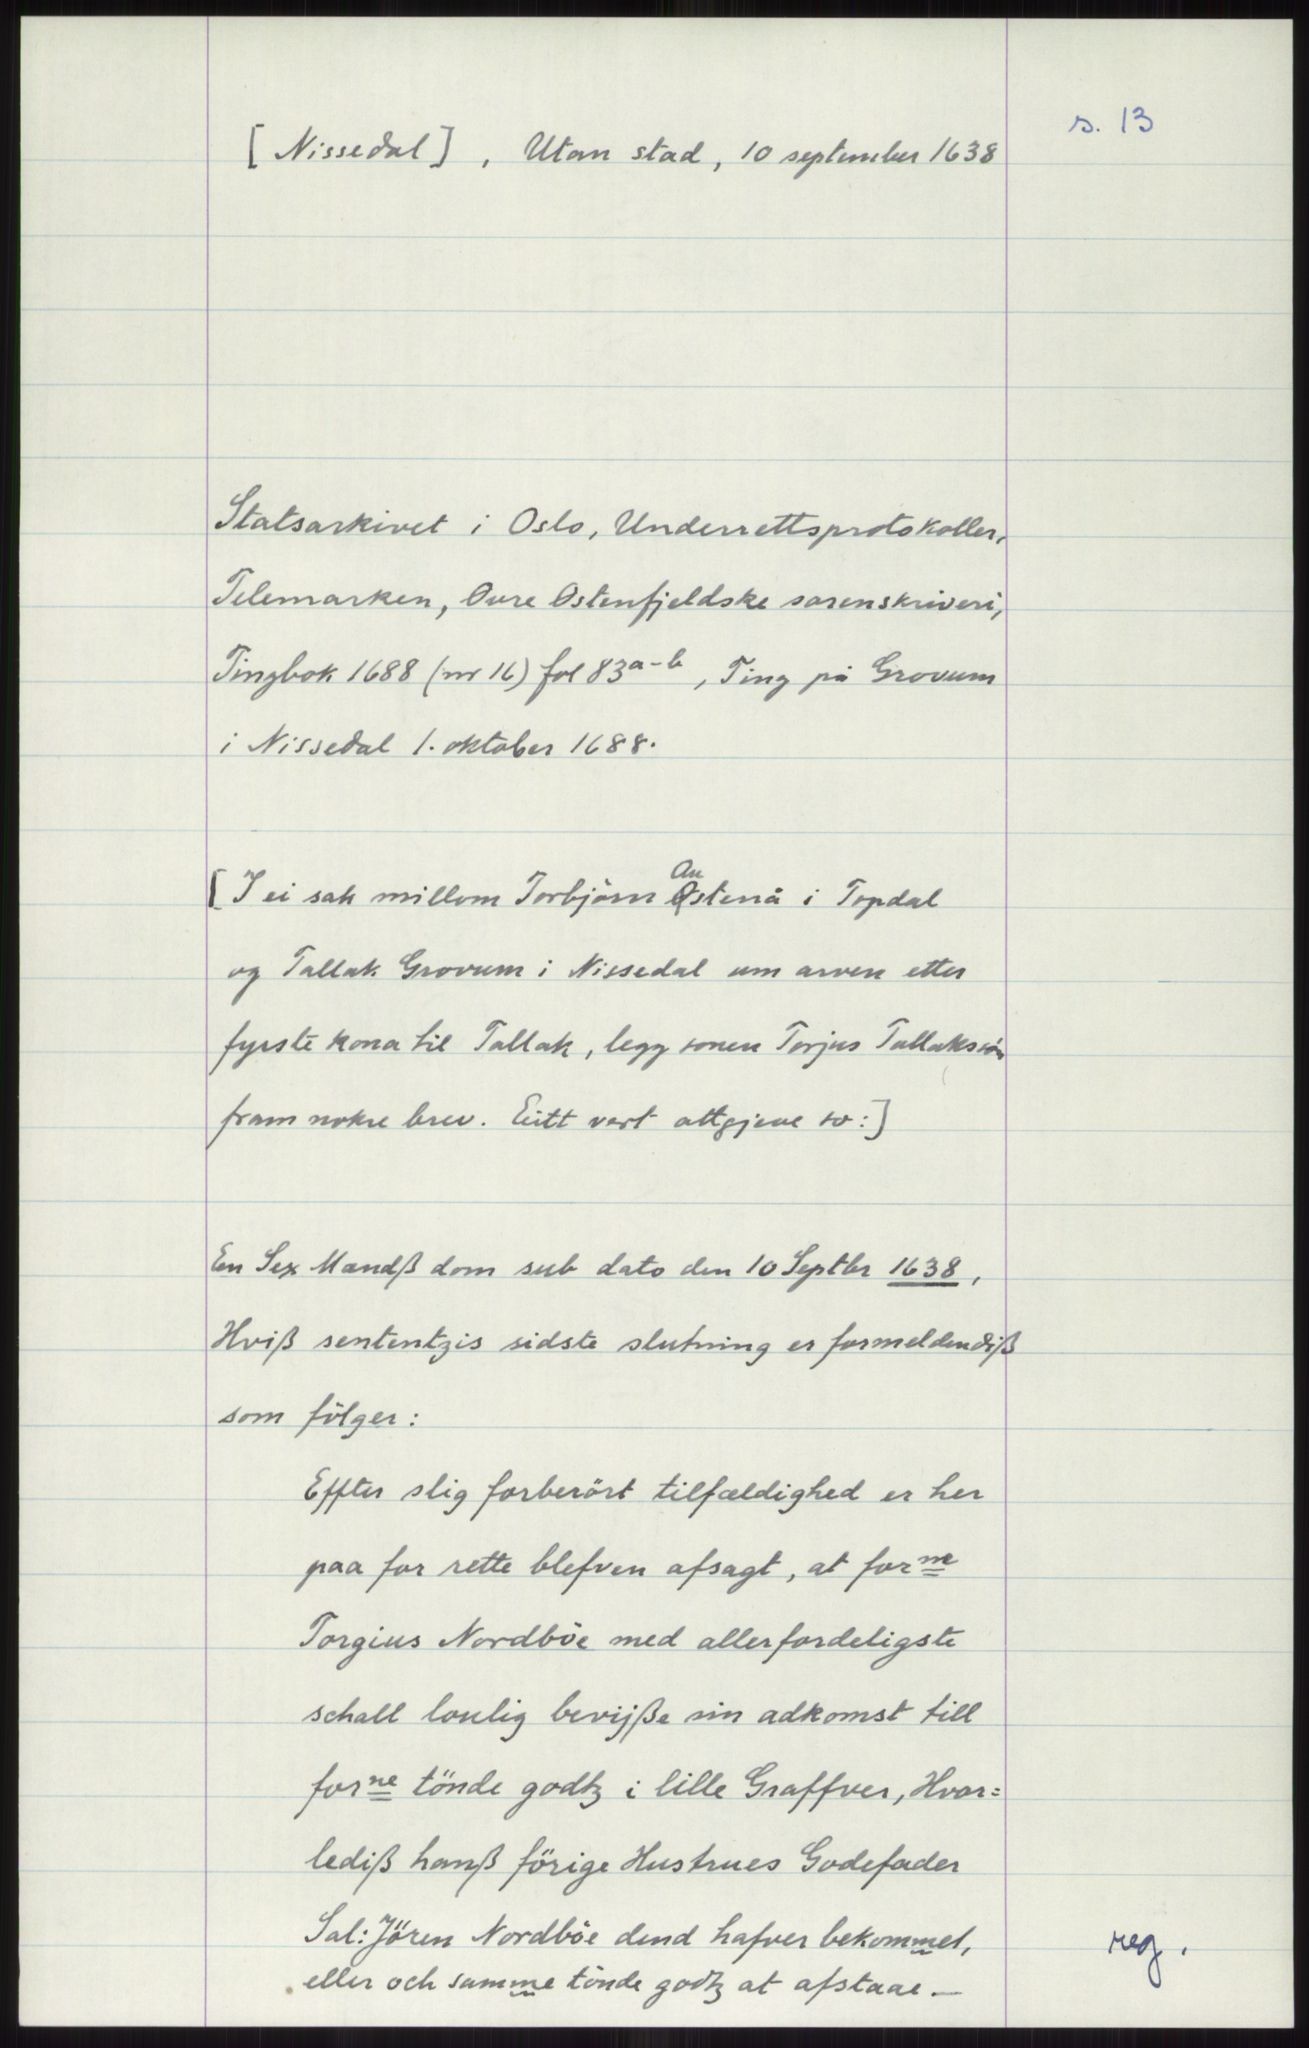 s. 13
[Nissedal], Utan stad, 10 september 1638
Statsarkivet i Oslo, Underrettsprotokoller,
Telemarken, Øvre Østenfjeldske sorenskriveri,
Tingbok 1688 (nr 16) fol 83a-b, Ting på Grovum
i Nissedal 1. oktober 1688.
[I ei sak millom Torbjörn Austenå i Topdal
og Tallak Grovum i Nissedal um arven etter
fyrste kona til Tallak, legg sonen Torjus Tallaksson
fram nokre brev. Eitt vert attgjeve so:]
En Sex Mandß dom sub dato den 10 Septbr 1638,
Hviß sententzis sidste slutning er formeldendiß
som fölger:
Effter slig forberört tilfældighed er her
paa for rette blefven afsagt, at forne
Torgius Nordböe med allerfordeligste
schall loulig bevijße sin adkomst till
forne tönde godtz i lille Graffver, Hvor=
lediß hanß förige Hustrues Godefader
Sal: Jören Nordböe dend hafver bekommet,
eller och samme tönde godtz at afstaae.—
reg.